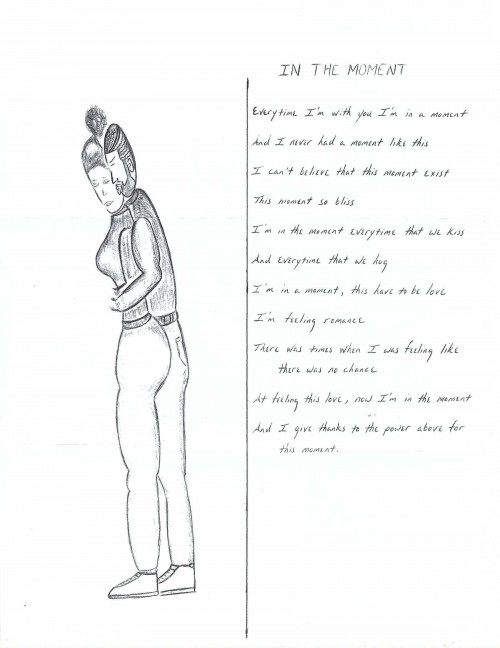 IN THE MOMENT
Everytime I'm with you I'm in a moment
And I never had a moment like this
I can't believe that this moment exist
This moment so bliss
I'm in the moment everytime that we kiss
And everytime that we hug
I'm in a moment, this have to be love
I'm feeling romance
There was times when I was feeling like
there was no chance
At feeling this love, now I'm in the moment
And I give thanks to the power above for
this moment.